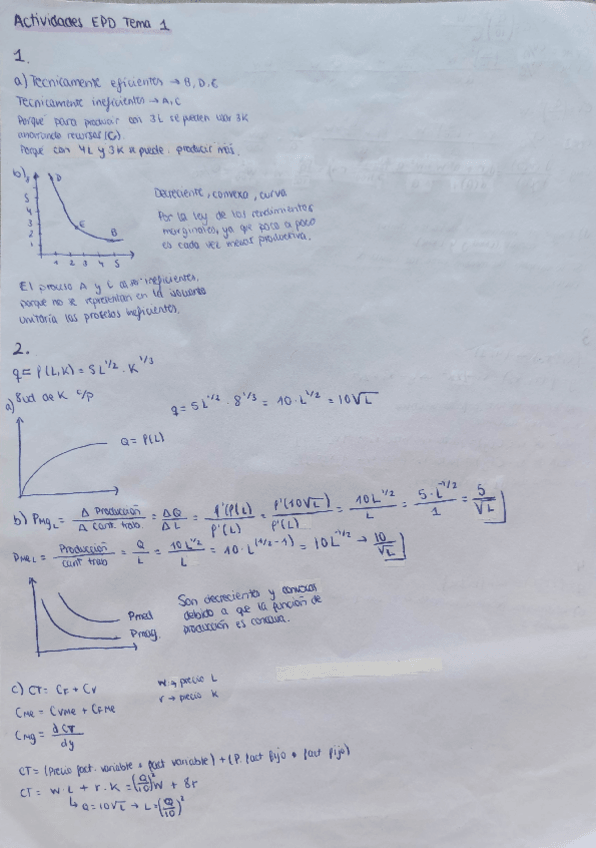 Actividades EPD Tema 1
1.
a) Tecnicamente eficientes → B, D, E
Tecnicamente ineficientes → A, C
Porque para producir con 3L se pueden usar 3K
ahorrando recursos (C)
Porque con 4L y 3K se puede producir más.
b)
D
5
4
3
2
1
E
B
1 2 3 4 5
Decreciente, convexa, curva
Por la ley de los rendimientos
marginales, ya que poco a poco
es cada vez menos productiva.
El proceso A y C al ser ineficientes,
porque no se representan en la isocuanta
unitaria los procesos ineficientes.
2.
q = f(L,K) = 5L^1/2 · K^1/3
a) 8ud de K c/p
q = 5L^1/2 · 8^1/3 = 10 · L^1/2 = 10√L
Q = f(L)
b) PMgL = Δ Producción / Δ Cant. trab = ΔQ / ΔL = f'(f(L)) / f'(L) = f'(10√L) / f'(L) = 10L^1/2 / L = 5·L^-1/2 / 1 = 5/√L
PMeL = Producción / Cant trab = Q / L = 10L^1/2 / L = 10·L^(1/2-1) = 10L^-1/2 → 10/√L
Pmed
Pmag.
Son decrecientes y convexas
debido a que la función de
producción es concava.
c) CT = CF + CV
w → precio L
r → precio K
CMe = CVMe + CFMe
CMg = dCT / dy
CT = (Precio fact. variable * fact variable) + (P. fact fijo * fact fijo)
CT = W·L + r·K = (Q/10)²w + 8r
↳ Q = 10√L → L = (Q/10)²